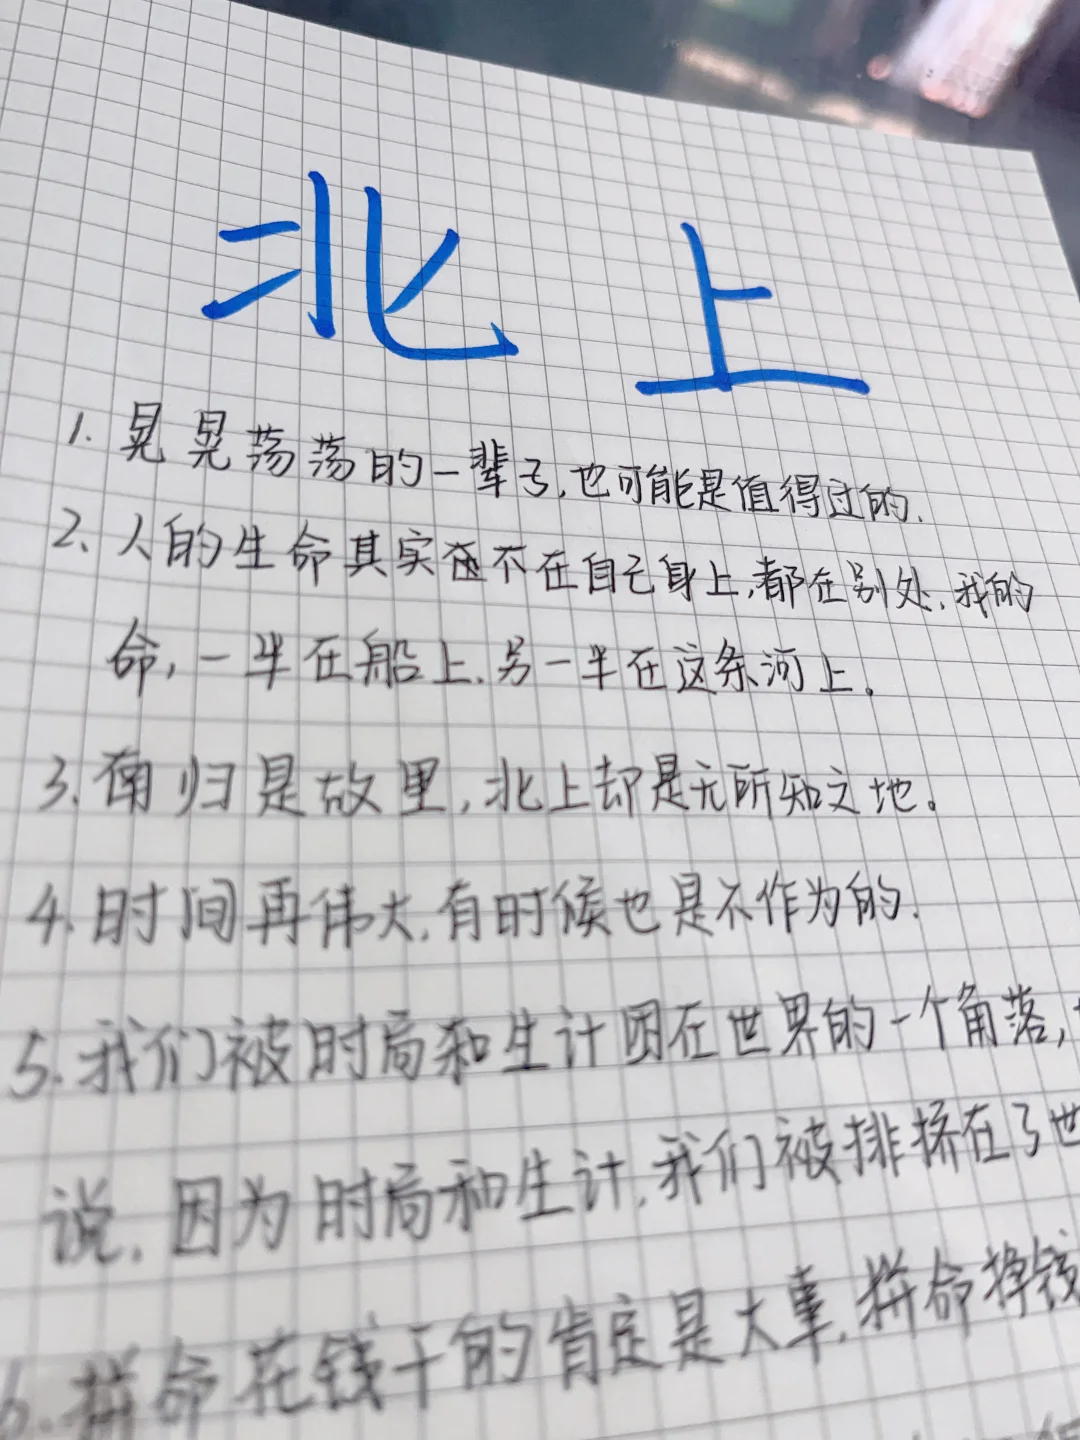 北上
1. 晃晃荡荡的一辈子,也可能是值得过的.
2、人的生命其实不在自己身上,都在别处.我的
命,一半在船上.另一半在这条河上。
3.南归是故里,北上却是无所知之地。
4.时间再伟大.有时候也是不作为的.
5.我们被时局和生计困在世界的一个角落,
说.因为时局和生计.我们被排挤在了世
6.拼命花钱干的肯定是大事.拼命挣钱